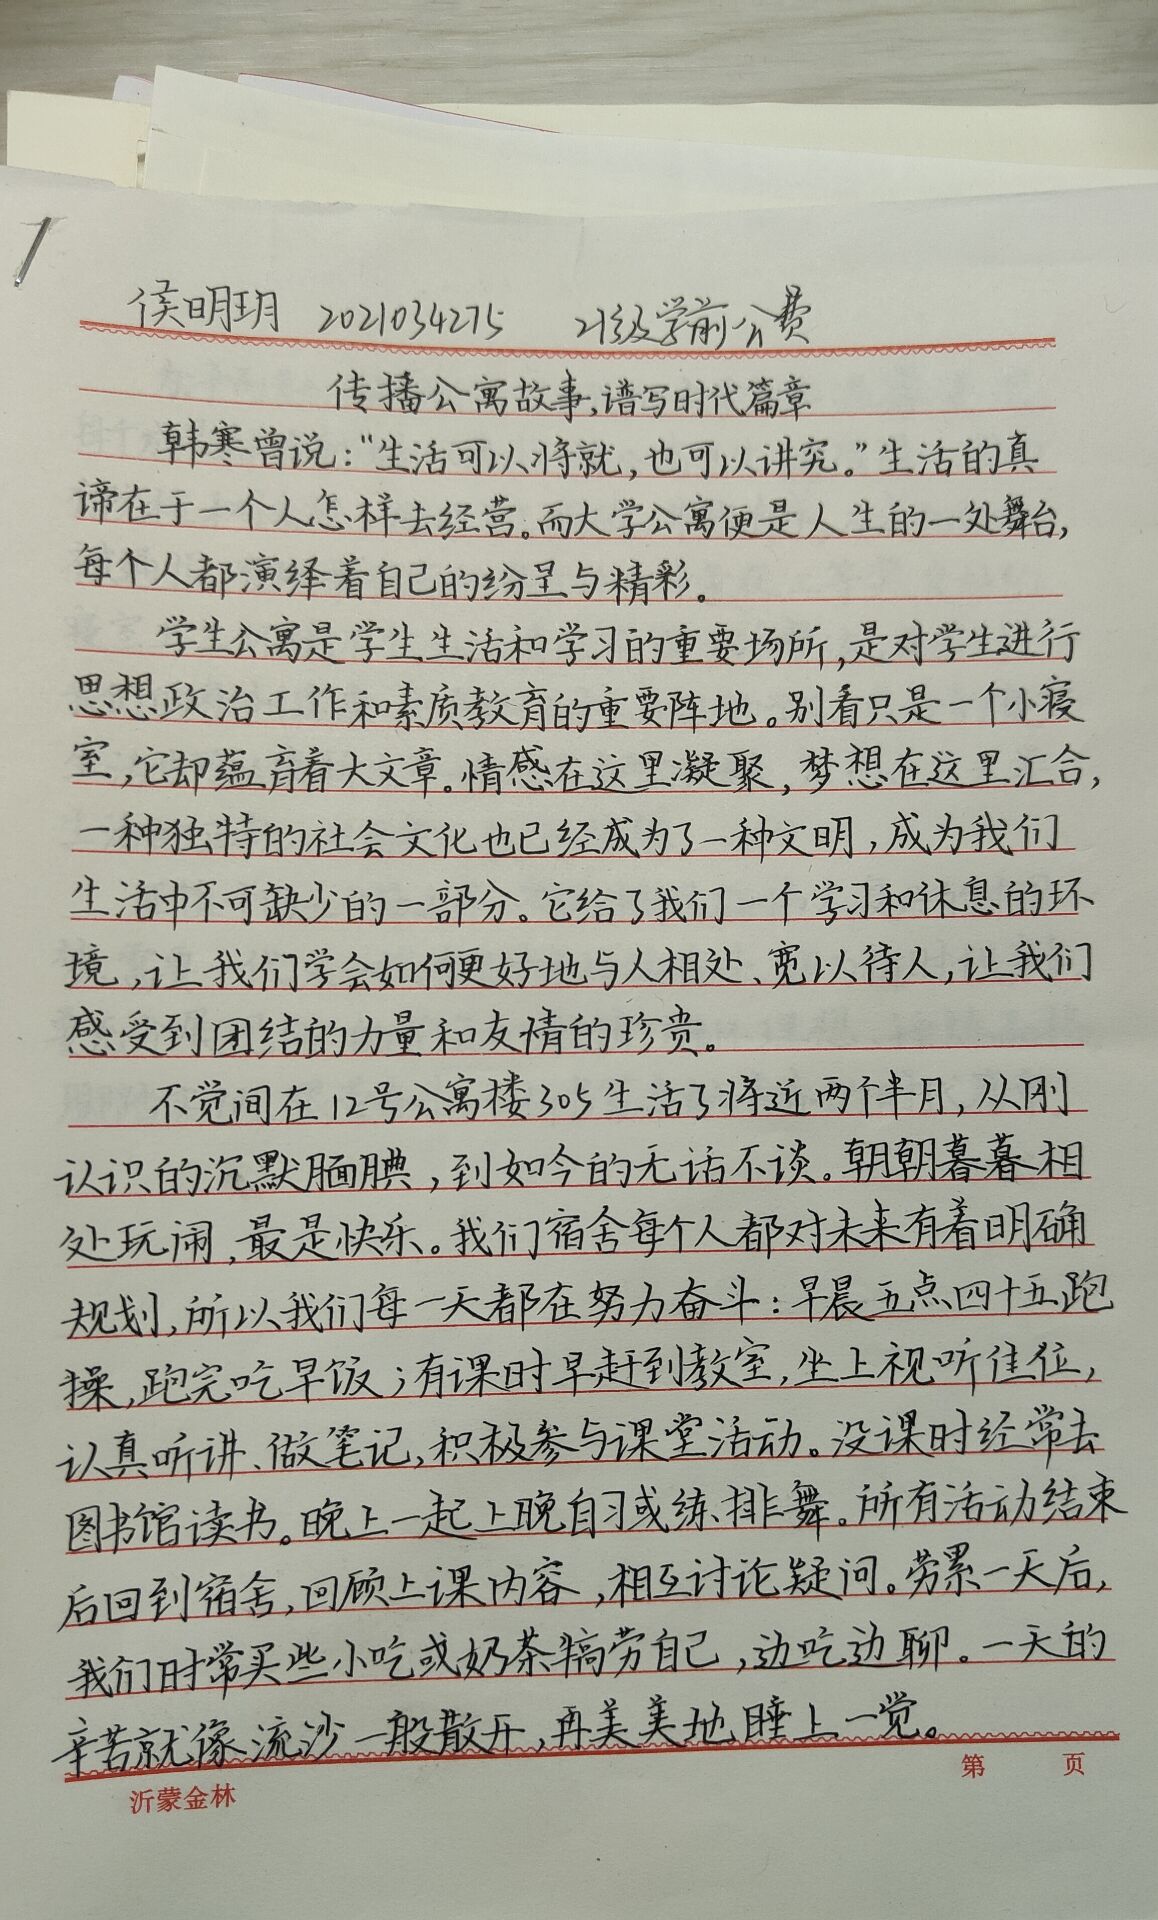 侯明玥 2021034275 21级学前公费
传播公寓故事,谱写时代篇章
韩寒曾说:“生活可以将就,也可以讲究。”生活的真
谛在于一个人怎样去经营。而大学公寓便是人生的一处舞台,
每个人都演绎着自己的纷呈与精彩。
学生公寓是学生生活和学习的重要场所,是对学生进行
思想政治工作和素质教育的重要阵地。别看只是一个小寝
室,它却蕴育着大文章。情感在这里凝聚,梦想在这里汇合,
一种独特的社会文化也已经成为了一种文明,成为我们
生活中不可缺少的一部分。它给了我们一个学习和休息的环
境,让我们学会如何更好地与人相处、宽以待人,让我们
感受到团结的力量和友情的珍贵。
不觉间在12号公寓楼305生活了将近两个半月,从刚
认识的沉默腼腆,到如今的无话不谈。朝朝暮暮相
处玩闹,最是快乐。我们宿舍每个人都对未来有着明确
规划,所以我们每一天都在努力奋斗:早晨五点四十五跑
操,跑完吃早饭;有课时早赶到教室,坐上视听佳位,
认真听讲、做笔记,积极参与课堂活动。没课时经常去
图书馆读书。晚上一起上晚自习或练排舞。所有活动结束
后回到宿舍,回顾上课内容,相互讨论疑问。劳累一天后,
我们时常买些小吃或奶茶犒劳自己,边吃边聊。一天的
辛苦就像流沙一般散开,再美美地睡上一觉。
沂蒙金林 第 页